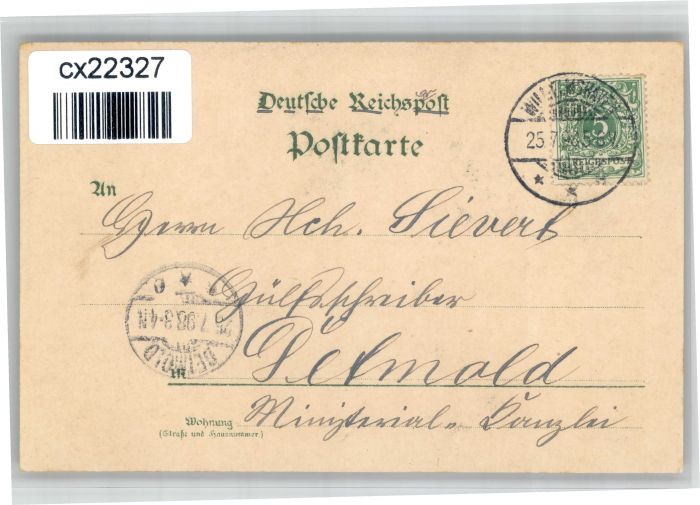 cx22327
Deutsche Reichspost
Postkarte
5
REICHSPOST
25.7.98
An
Herrn Hch. Sievert
Hülfsschreiber
7.98.3-4N
DETMOLD
in Detmold
Wohnung
(Straße und Hausnummer)
Ministerial-Kanzlei